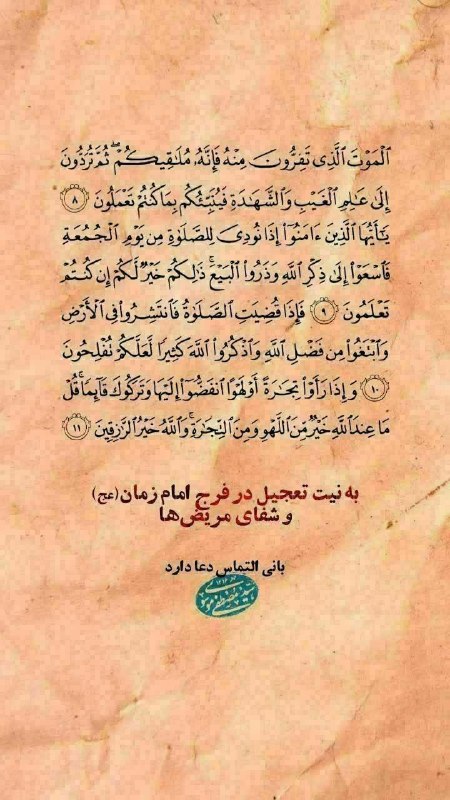 ٱلْمَوْتَ ٱلَّذِى تَفِرُّونَ مِنْهُ فَإِنَّهُۥ مُلَٰقِيكُمْ ۖ ثُمَّ تُرَدُّونَ
إِلَىٰ عَٰلِمِ ٱلْغَيْبِ وَٱلشَّهَٰدَةِ فَيُنَبِّئُكُم بِمَا كُنتُمْ تَعْمَلُونَ ٨
يَٰٓأَيُّهَا ٱلَّذِينَ ءَامَنُوٓا۟ إِذَا نُودِىَ لِلصَّلَوٰةِ مِن يَوْمِ ٱلْجُمُعَةِ
فَٱسْعَوْا۟ إِلَىٰ ذِكْرِ ٱللَّهِ وَذَرُوا۟ ٱلْبَيْعَ ۚ ذَٰلِكُمْ خَيْرٌ لَّكُمْ إِن كُنتُمْ
تَعْلَمُونَ ٩ فَإِذَا قُضِيَتِ ٱلصَّلَوٰةُ فَٱنتَشِرُوا۟ فِى ٱلْأَرْضِ
وَٱبْتَغُوا۟ مِن فَضْلِ ٱللَّهِ وَٱذْكُرُوا۟ ٱللَّهَ كَثِيرًا لَّعَلَّكُمْ تُفْلِحُونَ
١٠ وَإِذَا رَأَوْا۟ تِجَٰرَةً أَوْ لَهْوًا ٱنفَضُّوٓا۟ إِلَيْهَا وَتَرَكُوكَ قَآئِمًا ۚ قُلْ
مَا عِندَ ٱللَّهِ خَيْرٌ مِّنَ ٱللَّهْوِ وَمِنَ ٱلتِّجَٰرَةِ ۚ وَٱللَّهُ خَيْرُ ٱلرَّٰزِقِينَ ١١
به نیت تعجیل در فرج امام زمان (عج)
و شفای مریض‌ها
بانی التماس دعا دارد
سید مصطفی موسوی